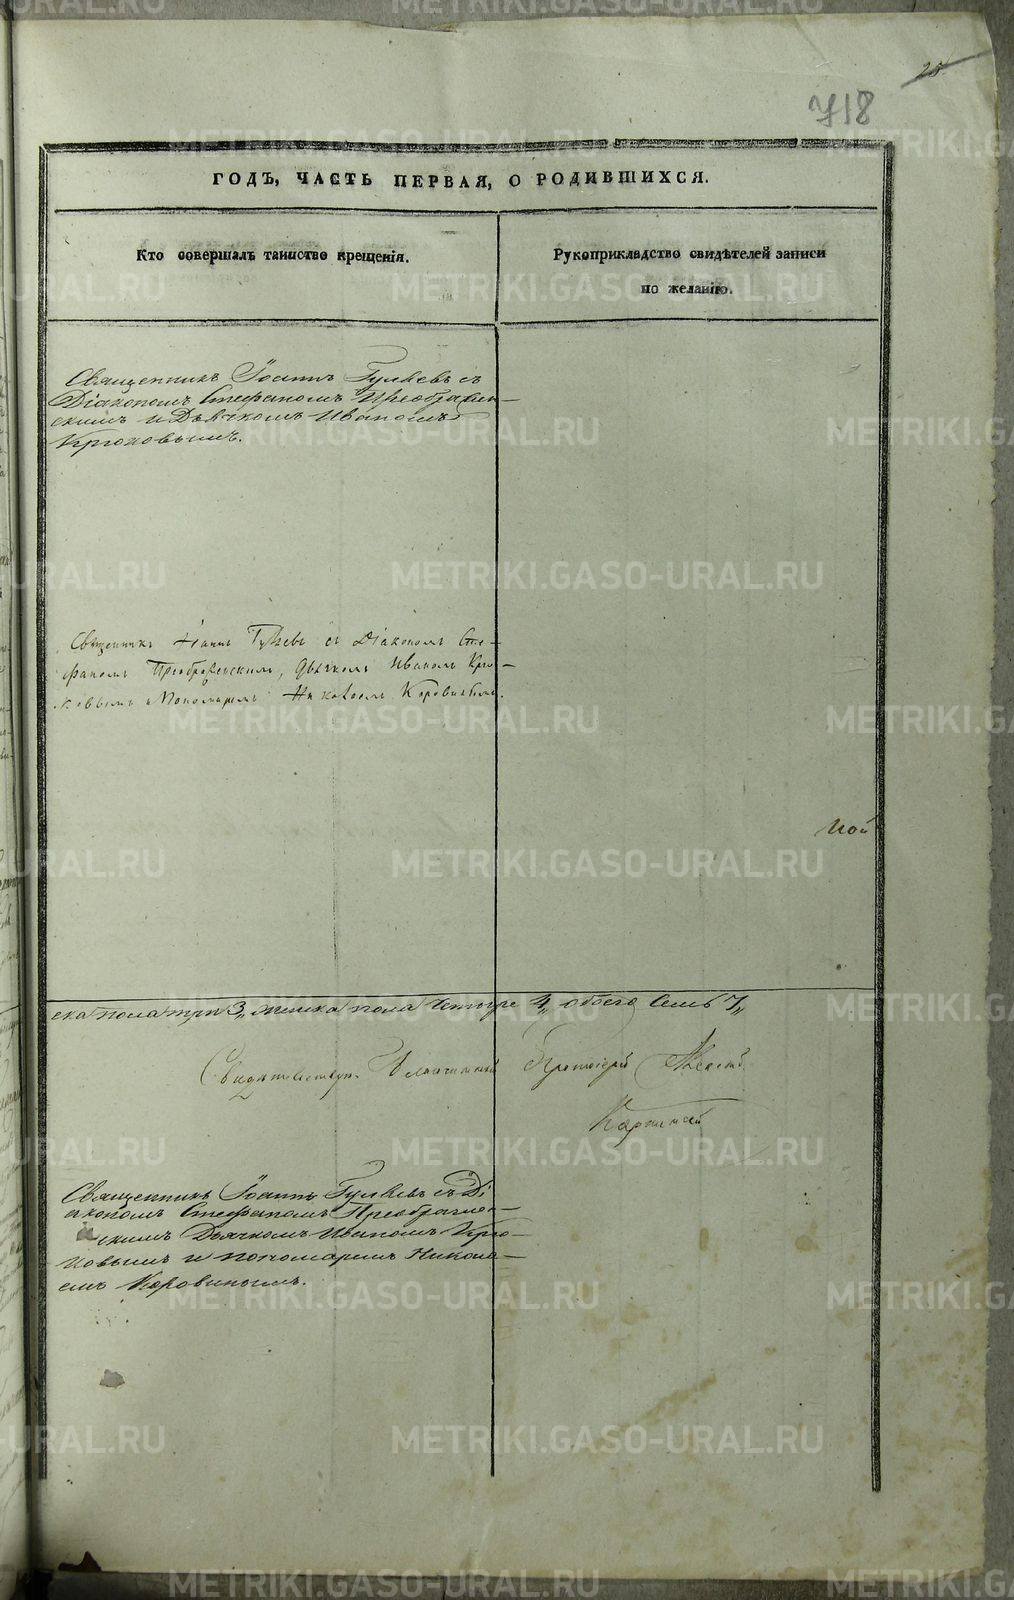 25
718
ГОДЪ, ЧАСТЬ ПЕРВАЯ, О РОДИВШИХСЯ.
Кто совершалъ таинство крещенія.
Рукоприкладство свидѣтелей записи
по желанію.
Священникъ Іоаннъ Гуляевъ съ
Діакономъ Стефаномъ Преображен-
скимъ и Дьячкомъ Иваномъ
Крюковымъ.
Священникъ Іоаннъ Гуляевъ съ Діакономъ Сте-
фаномъ Преображенскимъ, Дьячкомъ Иваномъ Крю-
ковымъ и Пономаремъ Николаемъ Коровинымъ.
ска пола три 3, женска пола четыре 4, обоего Семь 7,,
Протоіерей
Священникъ Іоаннъ Гуляевъ съ Ді
акономъ Стефаномъ Преображен-
скимъ Дьячкомъ Иваномъ Крю-
ковымъ и пономаремъ Никола-
емъ Коровинымъ.
METRIKI.GASO-URAL.RU